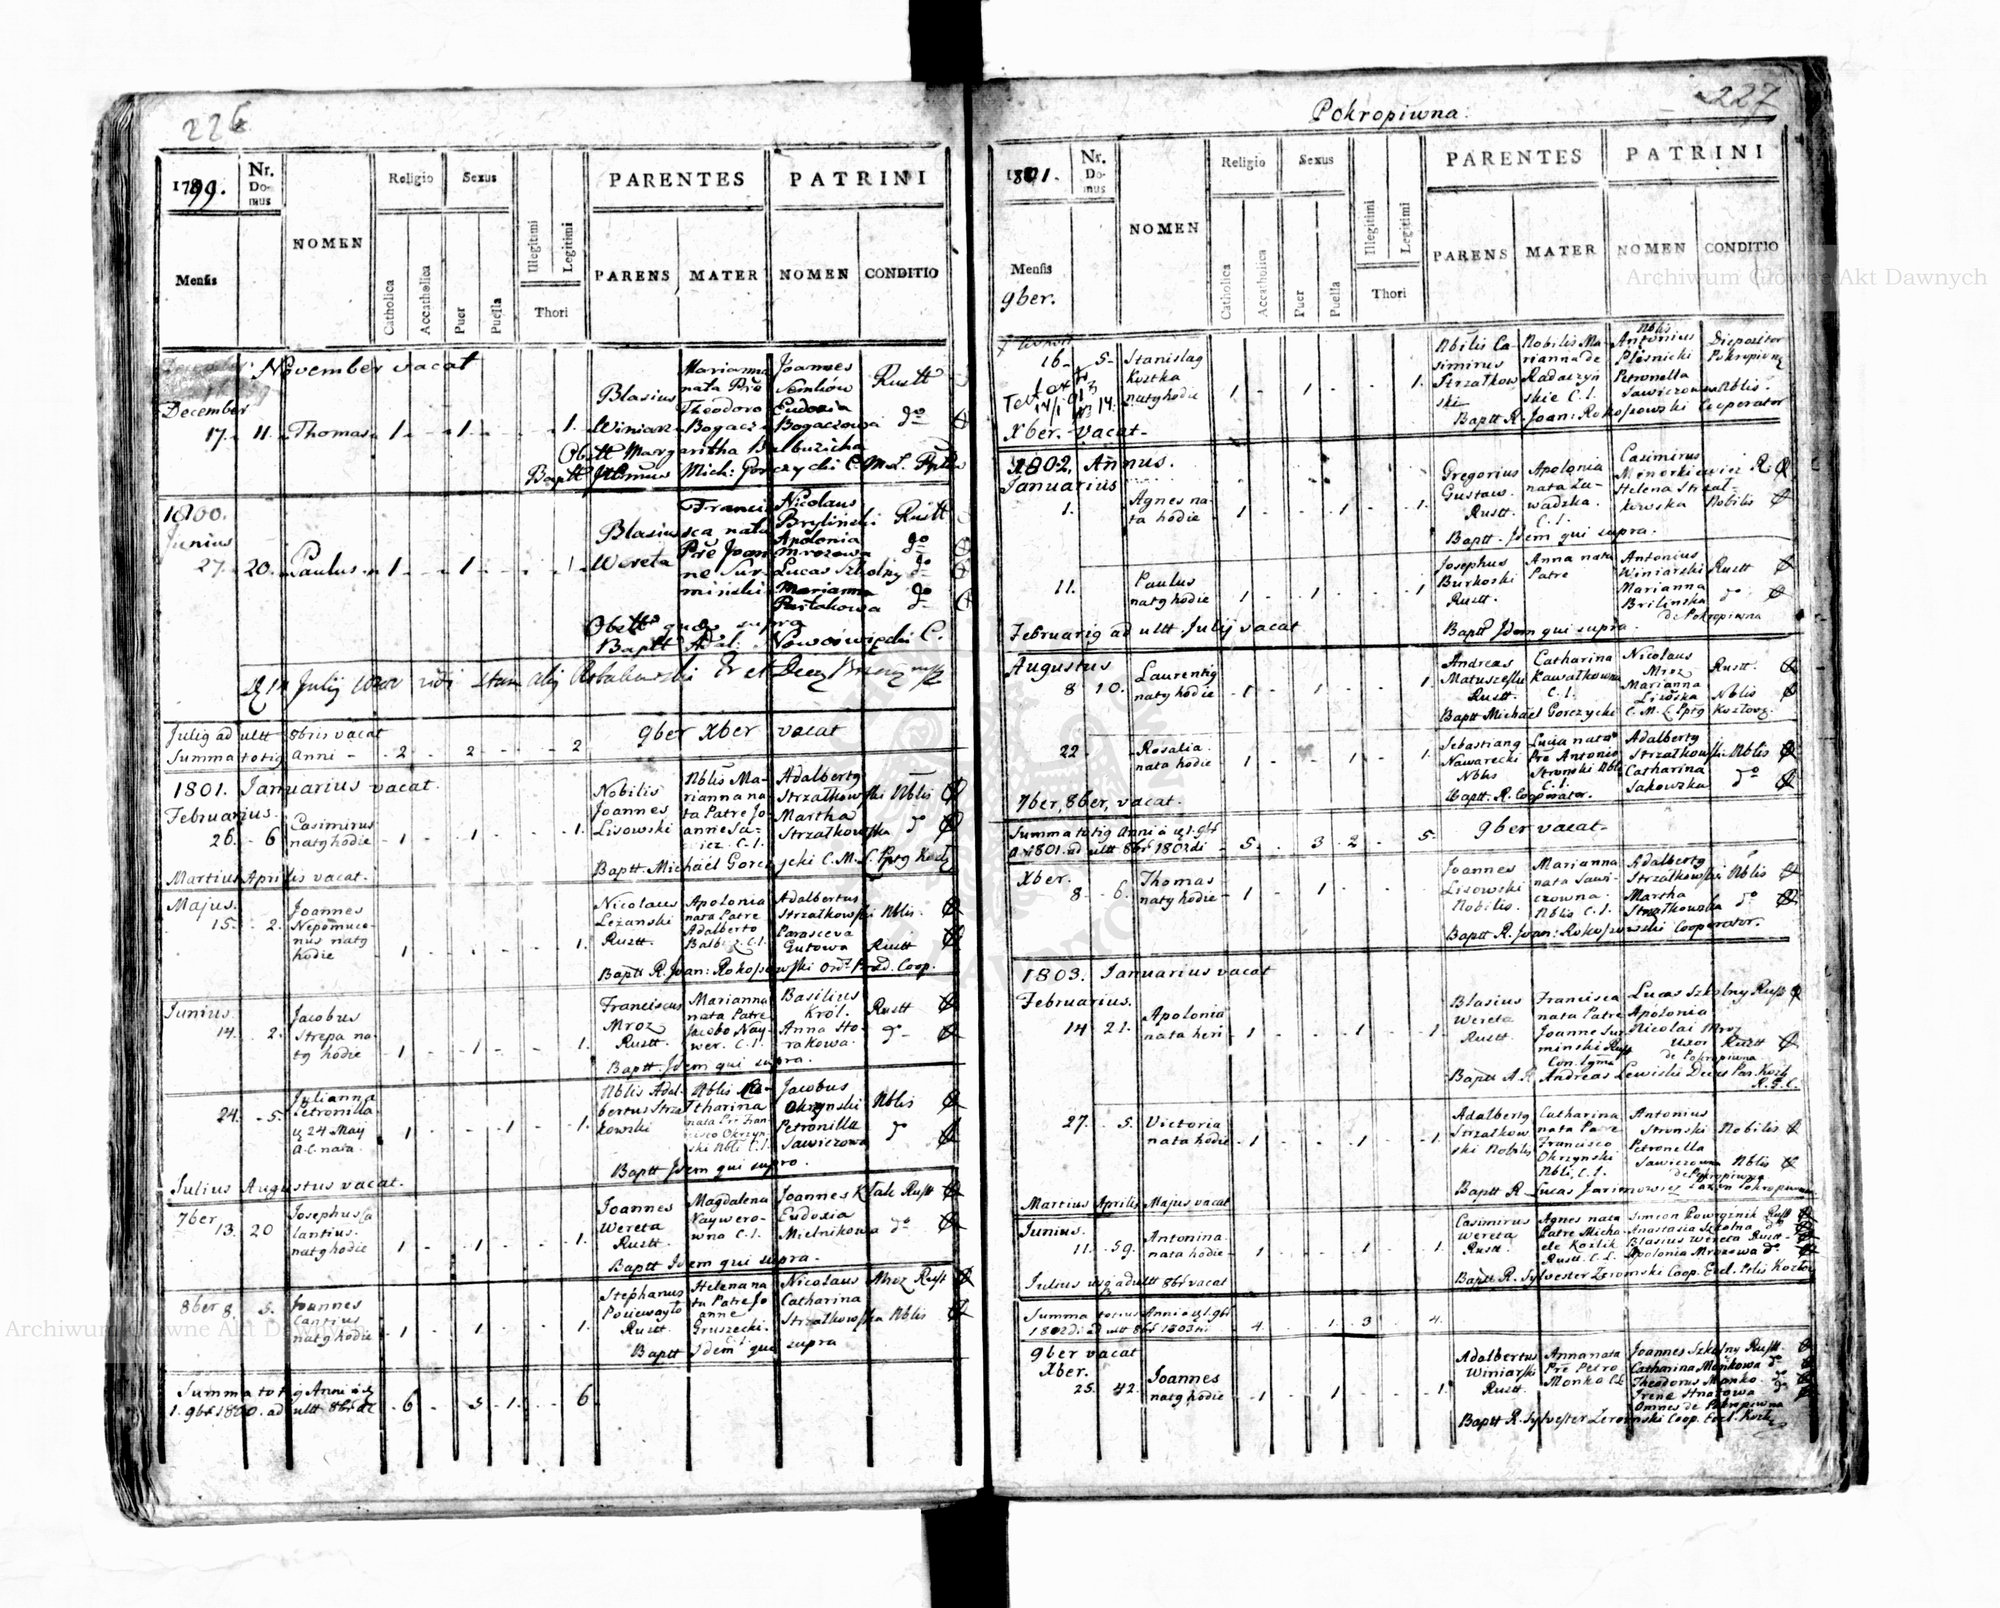 226
1799.
Nr. Domus
NOMEN
Religio
Sexus
PARENTES
PATRINI
Mensis
Catholica
Accatholica
Puer
Puella
Illegitimi
Legitimi
Thori
PARENS
MATER
NOMEN
CONDITIO
November vacat
December
17. 11. Thomas 1 1 1.
Blasius
Winiarz
Marianna
nata Pře
Theodoro
Bogacz
Joannes
Semkiów Rustt
Eudoxia
Bogaczowa do
Obstt Margaritha Balbuzicha
Baptt Mich: Gorczycki C. M. L.
1800.
Junius
27. 20. Paulus 1 1 1
Blasius
Wereta
Francis
ca nata
Pře Joan
ne Sur
minski
Nicolaus
Brylinski Rustt
Apolonia
Mrozowa do
Lucas Szkolny do
Marianna
Pastakowa do
Obsttx quæ supra
Baptt Adal: Nowowieyski C.
Julig ad ultt 8bris vacat 9ber Xber vacat
Summa totig Anni - 2 2 2
1801. Januarius vacat.
Februarius.
26. 6 Casimirus
natg hodie 1 1 1.
Nobilis
Joannes
Lisowski
Nblis Ma-
rianna na
ta Patre Jo
anne Sa-
wicz. C. I.
Adalbertg
Strzałkowski Nblis
Martha
Strzałkowska do
Baptt. Michaël Gorczycki C. M. L. Pptg Kozł
Martius Aprilis vacat.
Majus.
15. 2. Joannes
Nepomuce-
nus natg
hodie 1 1 1.
Nicolaus
Leżanski
Rustt.
Apolonia
nata Patre
Adalberto
Balbuz. C. I.
Adalbertus
Strzałkowski Nblis.
Parasceva
Gutowa Rustt
Baptt R. Joan: Rokoszowski Ord. Præd. Coop.
Junius.
14. 2. Jacobus
Strepa na-
tg hodie 1 1 1.
Franciscus
Mroz
Rustt.
Marianna
nata Patre
Jacobo Nay-
wer. C. I.
Basilius
Król. Rustt
Anna Ho-
rakowa. do
Baptt. Jdem qui supra.
24. 5. Julianna
Petronilla
ą 24 May
a. c. nata. 1 1 1.
Nblis Adal-
bertus Strzał
kowski
Nblis Ca-
tharina
nata Pre Fran-
cisco Okrzyn-
ski Nbli C. I.
Jacobus
Okrzynski Nblis
Petronilla
Sawiczowa do
Baptt Jdem qui supra.
Julius Augustus vacat.
7ber
13. 20 Josephus Ca
lantius.
natg hodie 1 1 1.
Joannes
Wereta
Rustt.
Magdalena
Naywero-
wna C. I.
Joannes Kłak Rustt
Eudoxia
Mielnikowa do
Baptt Jdem qui supra.
8ber 8. 5. Joannes
Cantius
natg hodie 1 1 1.
Stephanus
Poziewayło
Rustt.
Helena na
ta Patre Jo
anne
Gruszecki.
C. I.
Nicolaus Mroz Rustt
Catharina
Strzałkowska Nblis
Baptt Jdem qui supra
Summa totig Anni á
1. 9bř 1800. ad ultt 8bř 6 5 1 6
227
Pokropiwna
1801.
Nr. Domus
NOMEN
Religio
Sexus
PARENTES
PATRINI
Mensis
9ber.
Catholica
Accatholica
Puer
Puella
Illegitimi
Legitimi
Thori
PARENS
MATER
NOMEN
CONDITIO
16 5 Stanislag
Kostka
natg hodie 1 1 1.
Nbilis Ca
simirus
Strzałkow
ski
Nobilis Ma-
rianna de
Radaczyń
skie C. I.
Nblis
Antonius
Plesnicki
Petronella
Sawiczowa Nblis.
Dispositor
Pokropiwng
Baptt R. Joan: Rokoszowski Cooperator
Xber. vacat.
1802. Annus.
Januarius
1. Agnes na
ta hodie 1 1 1.
Gregorius
Gustaw.
Rustt.
Apolonia
nata Za-
wadzka.
C. I.
Casimirus
Monorkiewicz R.
Helena Strzał-
kowska Nobilis
Baptt. Jdem qui supra.
11. Paulus
natg hodie 1 1 1
Josephus
Burkoski
Rustt.
Anna nata
Patre
Antonius
Winiarski Rustt
Marianna
Brilinska do
de Pokropiwna
Baptt Jdem qui supra.
Februarig ad ultt Julij vacat
Augustus
8 10. Laurentig
natg hodie 1 1 1.
Andreas
Matuszesku
Rustt.
Catharina
Kawałkowna
C. I.
Nicolaus
Mroz Rustt.
Marianna
Lisoska Nblis
Baptt Michaël Gorczycki C. M. L. Pptg Kozłovg.
22 Rosalia
nata hodie 1 1 1.
Sebastiang
Nawarecki
Nblis
Lucia nata
Pře Antonio
Stronski Nbli
C. I.
Adalbertg
Strzałkowski Nblis
Catharina
Sakowska do
Baptt. R. Cooperator.
7ber, 8ber, vacat.
Summa totig Anni á 1. 9bř
a. 1801. ad ultt 8bř 1802di 5. 3 2 5.
9ber vacat
Xber.
8 6. Thomas
natg hodie 1 1
Joannes
Lisowski
Nobilis.
Marianna
nata Sawi-
czowna.
Nblis C. I.
Adalbertg
Strzałkowski Nblis
Martha
Strzałkowska do
Baptt R. Joan: Rokoszowski Cooperator.
1803. Januarius vacat
Februarius.
14 21. Apolonia
nata heri 1 1 1.
Blasius
Wereta
Rustt.
Francisca
nata Patre
Joanne Sur
minski Rustt
Lucas Szkolny Rustt
Apolonia
Nicolai Mroz
uxor Rustt
de Pokropiwna
Baptt A. R. Andreas Lewiski
27. 5. Victoria
nata hodie 1 1 1.
Adalbertg
Strzałkow
ski Nobilis
Catharina
nata Patre
Francisco
Okrzynski
Nbli. C. I.
Antonius
Stronski Nobilis
Petronella
Sawiczowna Nblis
de Pokropiwna
Baptt R. Lucas Jarimowicz Pokropiwna
Martius Aprilis Majus vacat
Junius.
11. 59. Antonina
nata hodie 1 1 1.
Casimirus
Wereta
Rustt.
Agnes nata
Patre Micha-
ele Kozlik
Rustt. C. I.
Simeon Powroznik Rustt
Anastasia Szkolna do
Blasius Wereta Rustt
Apolonia Mrozowa do
Baptt R. Sylvester Zeromski Coop.
Julius usq ad ultt 8bř vacat
Summa totius Anni á 1. 9bř
1802di ad ultt 8bř 1803tii 4. 1 3 4.
9ber vacat
Xber.
25. 42. Joannes
natg hodie 1 1 1.
Adalbertus
Winiarski
Rustt.
Anna nata
Pře Petro
Monko C. I.
Joannes Szkolny Rustt.
Catharina Monkowa do
Theodorus Monko do
Irene Hnatowa do
Omnes de Pokropiwna
Baptt R. Sylvester Zeromski Coop. Eccl. Kozł
Archiwum Główne Akt Dawnych
Archiwum Główne Akt Dawnych